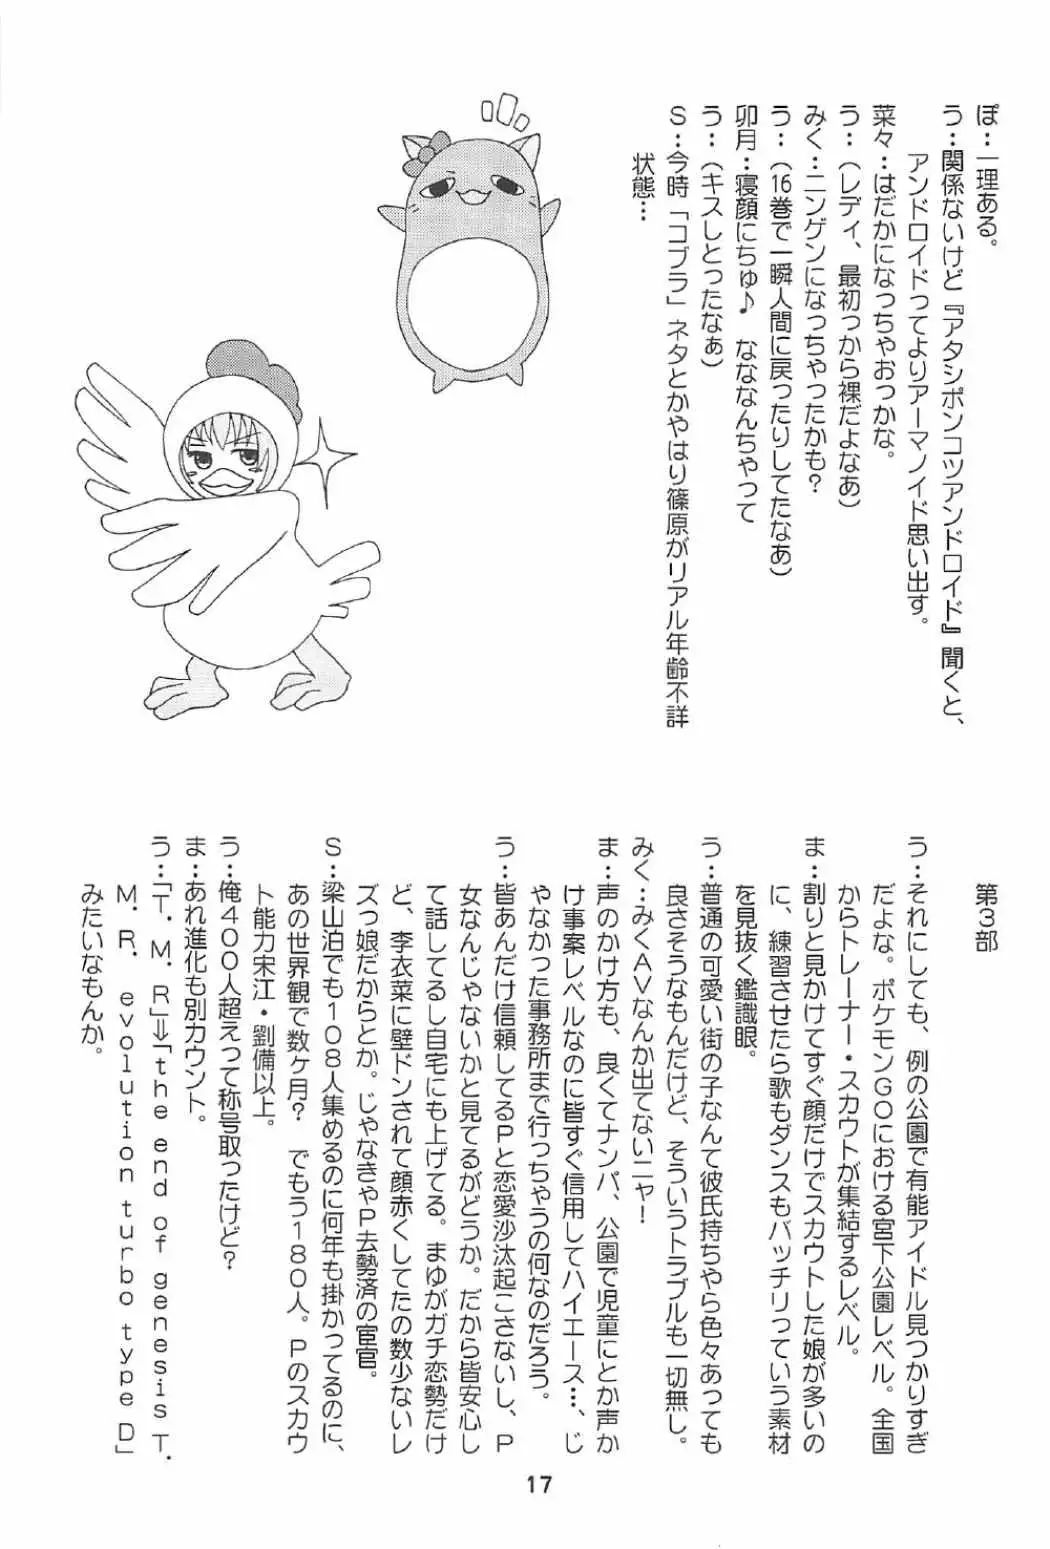 ぽ：一理ある。
う：関係ないけど『アタシポンコツアンドロイド』聞くと、
アンドロイドってよりアーマノイド思い出す。
菜々：はだかになっちゃおっかな。
う：（レディ、最初っから裸だよなあ）
みく：ニンゲンになっちゃったかも？
う：（16巻で一瞬人間に戻ったりしてたなあ）
卯月：寝顔にちゅ♪　なななんちゃって
う：（キスしとったなぁ）
Ｓ：今時「コブラ」ネタとかやはり篠原がリアル年齢不詳
状態…
第３部
う：それにしても、例の公園で有能アイドル見つかりすぎ
だよな。ポケモンGOにおける宮下公園レベル。全国
からトレーナー・スカウトが集結するレベル。
ま：割りと見かけてすぐ顔だけでスカウトした娘が多いの
に、練習させたら歌もダンスもバッチリっていう素材
を見抜く鑑識眼。
う：普通の可愛い街の子なんて彼氏持ちやら色々あっても
良さそうなもんだけど、そういうトラブルも一切無し。
みく：みくＡＶなんか出てないニャ！
ま：声のかけ方も、良くてナンパ、公園で児童にとか声か
け事案レベルなのに皆すぐ信用してハイエース…、じ
ゃなかった事務所まで行っちゃうの何なのだろう。
う：皆あんだけ信頼してるＰと恋愛沙汰起こさないし、Ｐ
女なんじゃないかと見てるがどうか。だから皆安心し
て話してるし自宅にも上げてる。まゆがガチ恋勢だけ
ど、李衣菜に壁ドンされて顔赤くしてたの数少ないレ
ズっ娘だからとか。じゃなきゃＰ去勢済の宦官。
Ｓ：梁山泊でも１０８人集めるのに何年も掛かってるのに、
あの世界観で数ヶ月？　でもう１８０人。Ｐのスカウ
ト能力宋江・劉備以上。
う：俺４００人超えって称号取ったけど？
ま：あれ進化も別カウント。
う：「Ｔ．Ｍ．Ｒ」⇒「ｔｈｅ ｅｎｄ ｏｆ ｇｅｎｅｓｉｓ Ｔ．
Ｍ．Ｒ． ｅｖｏｌｕｔｉｏｎ ｔｕｒｂｏ ｔｙｐｅ Ｄ」
みたいなもんか。
17